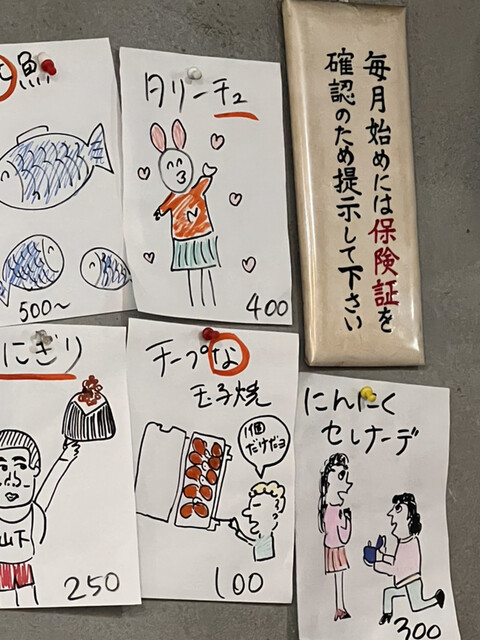 魚
500~
タリーチュ
400
毎月始めには保険証を
確認のため提示して下さい
にぎり
山下
250
チープな
玉子焼
1個
だけだヨ
100
にんにく
セレナーデ
300